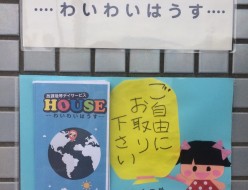 ……わいわいはうす……
放課後等デイサービス
HOUSE
…わいわいはうす…
ご自由に
お取り
下さい